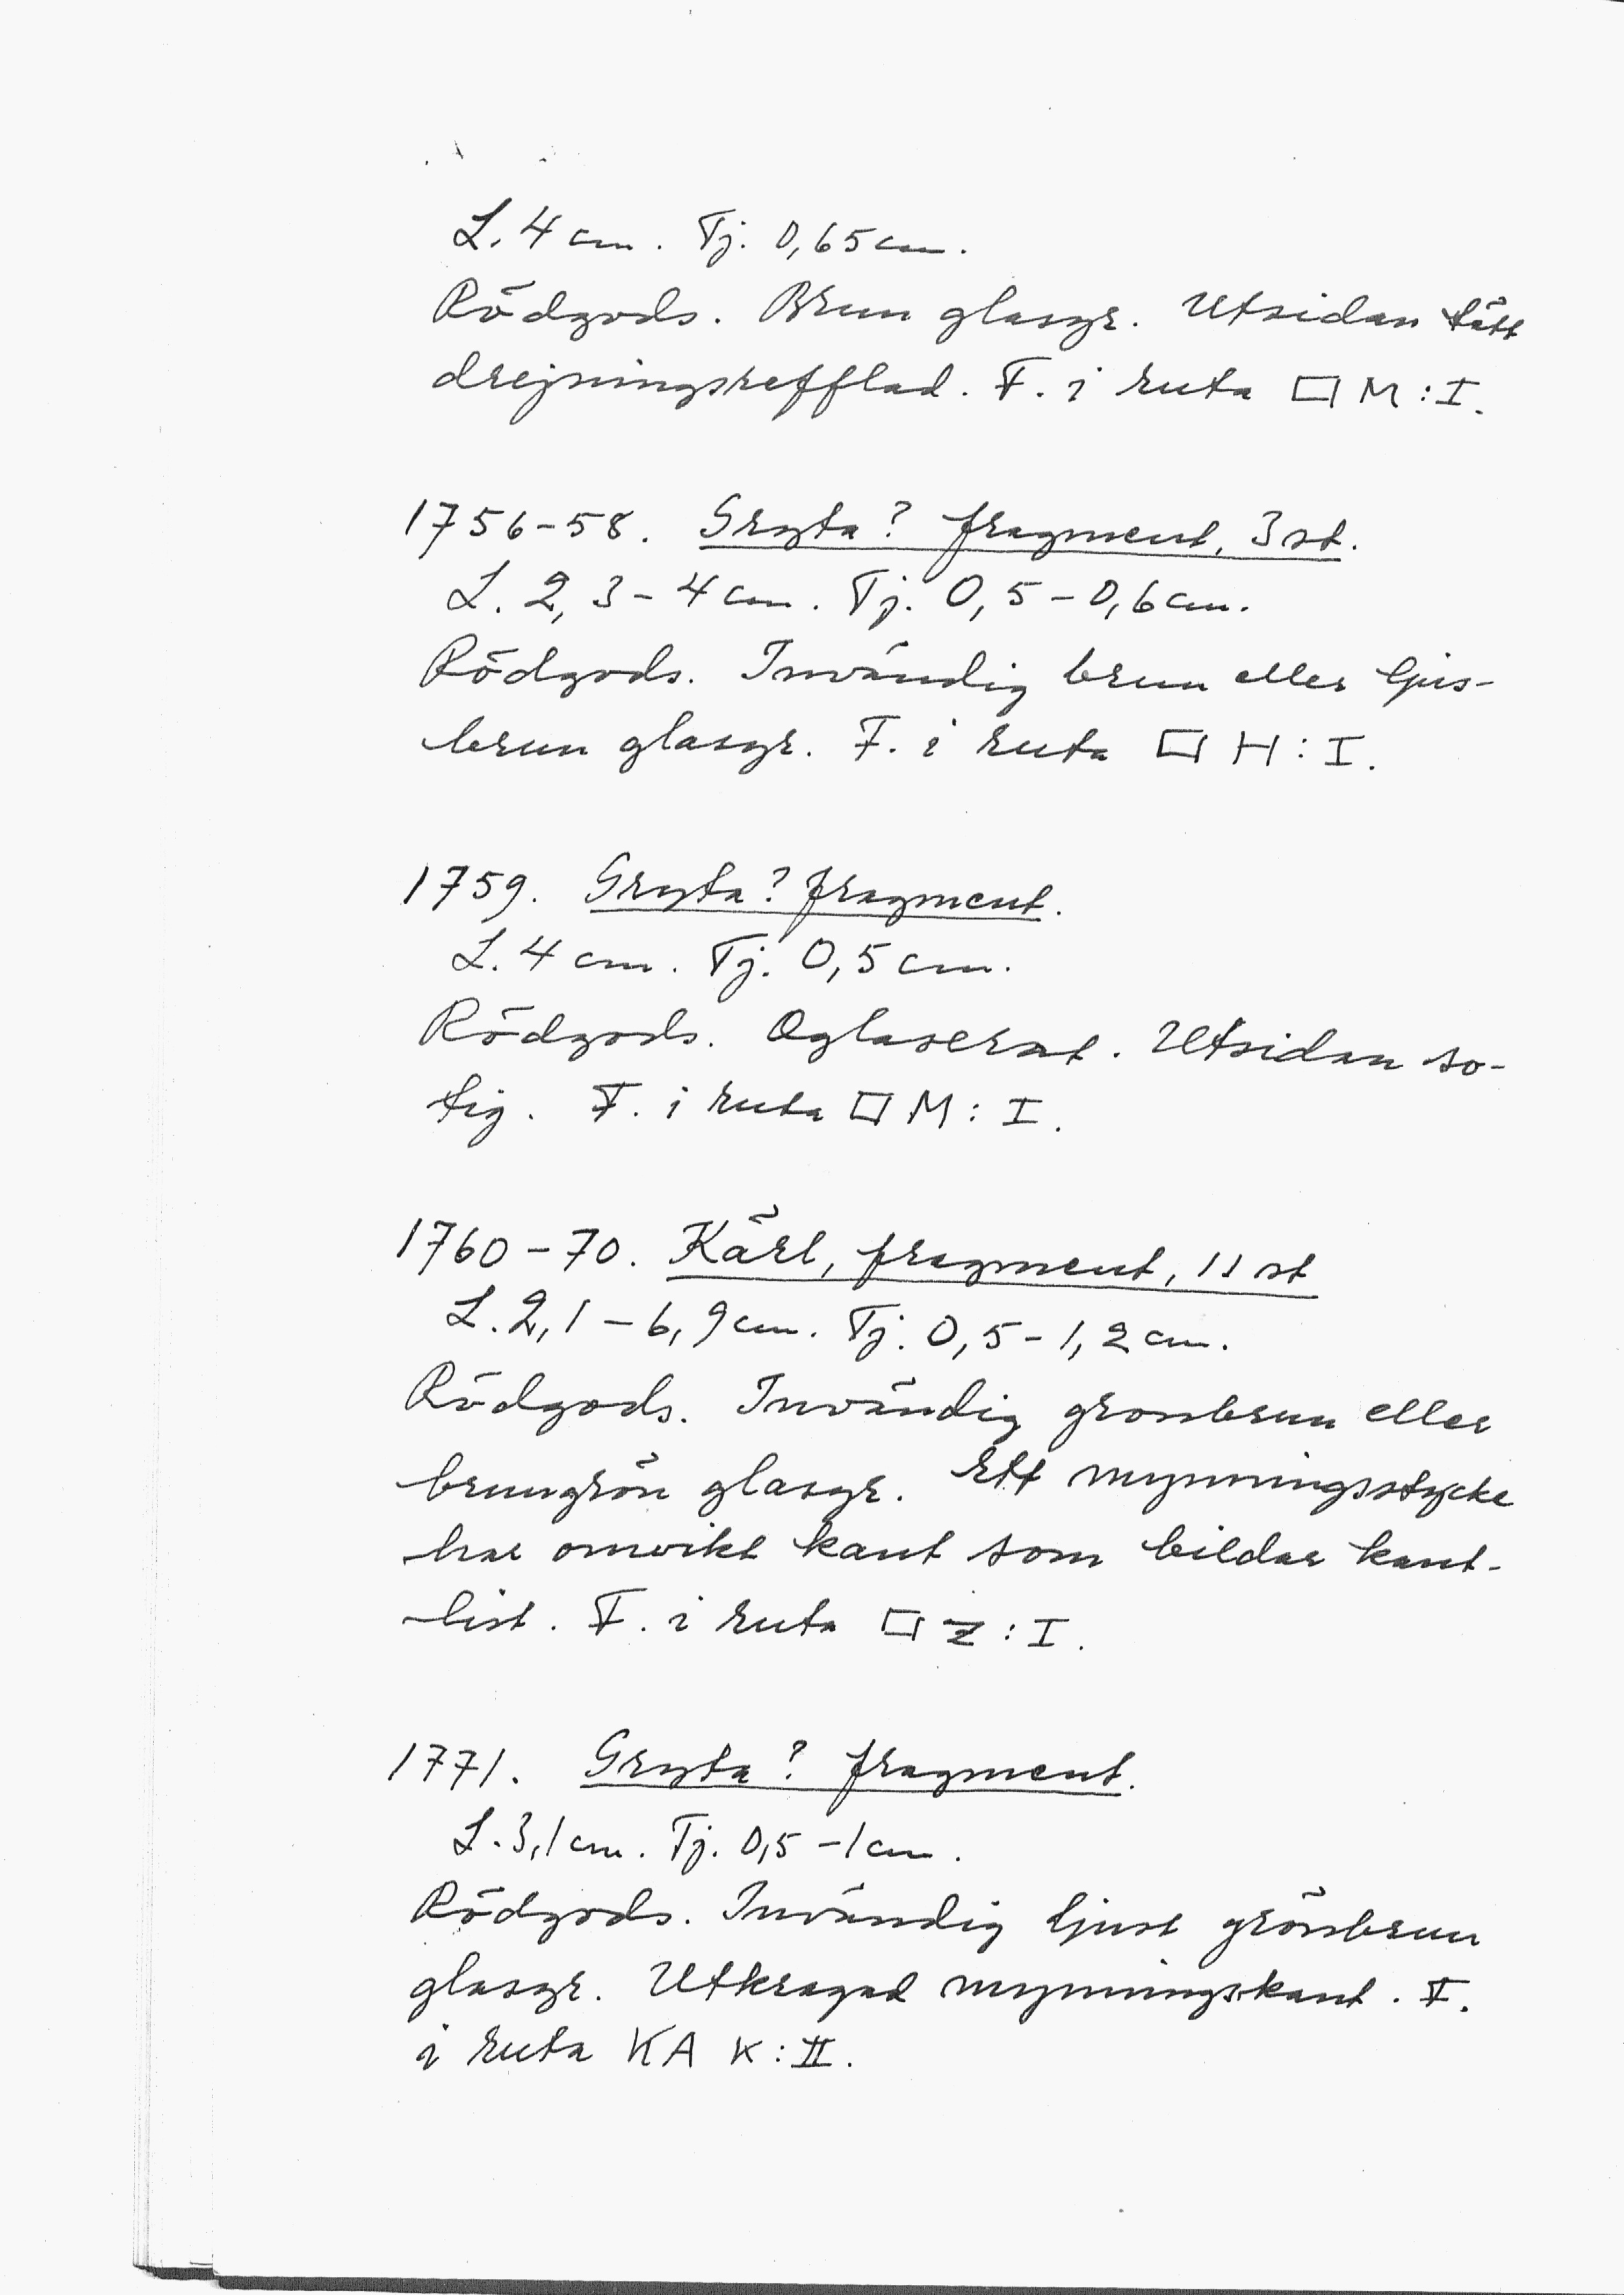 L. 4 cm. Tj. 0,65 cm.
Rödgods. Brun glasyr. Utsidan tätt
drejningsrefflad. F. i ruta □ M:I.
1756-58. Gryta? fragment, 3 st.
L. 2,3-4 cm. Tj. 0,5-0,6 cm.
Rödgods. Invändig brun eller ljus-
brun glasyr. F. i ruta □ H:I.
1759. Gryta? fragment.
L. 4 cm. Tj. 0,5 cm.
Rödgods. Oglaserat. Utsidan so-
tig. F. i ruta □ M:I.
1760-70. Kärl, fragment, 11 st
L. 2,1-6,9 cm. Tj. 0,5-1,2 cm.
Rödgods. Invändig gronbrun eller
brungrön glasyr. Ett mynningsstycke
har omvikt kant som bildar kant-
list. F. i ruta □ Z:I.
1771. Gryta? fragment.
L. 3,1 cm. Tj. 0,5-1 cm.
Rödgods. Invändig ljust grönbrun
glasyr. Utkragad mynningskant. F.
i ruta KA K:II.